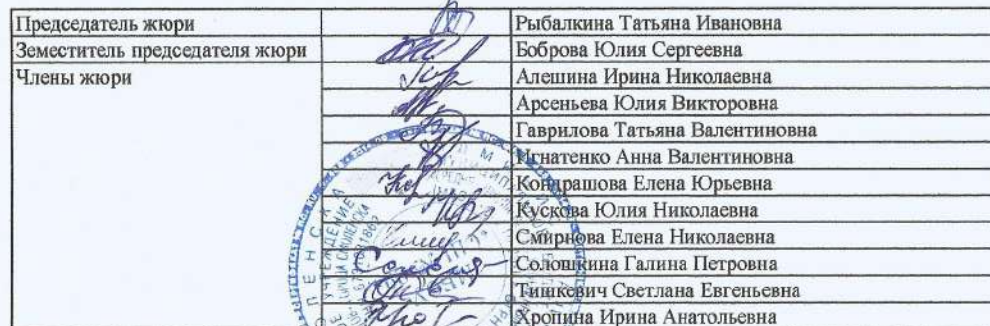 Председатель жюри Рыбалкина Татьяна Ивановна
Земеститель председателя жюри Боброва Юлия Сергеевна
Члены жюри Алешина Ирина Николаевна
Арсеньева Юлия Викторовна
Гаврилова Татьяна Валентиновна
Игнатенко Анна Валентиновна
Кондрашова Елена Юрьевна
Кускова Юлия Николаевна
Смирнова Елена Николаевна
Солошкина Галина Петровна
Тишкевич Светлана Евгеньевна
Хропина Ирина Анатольевна